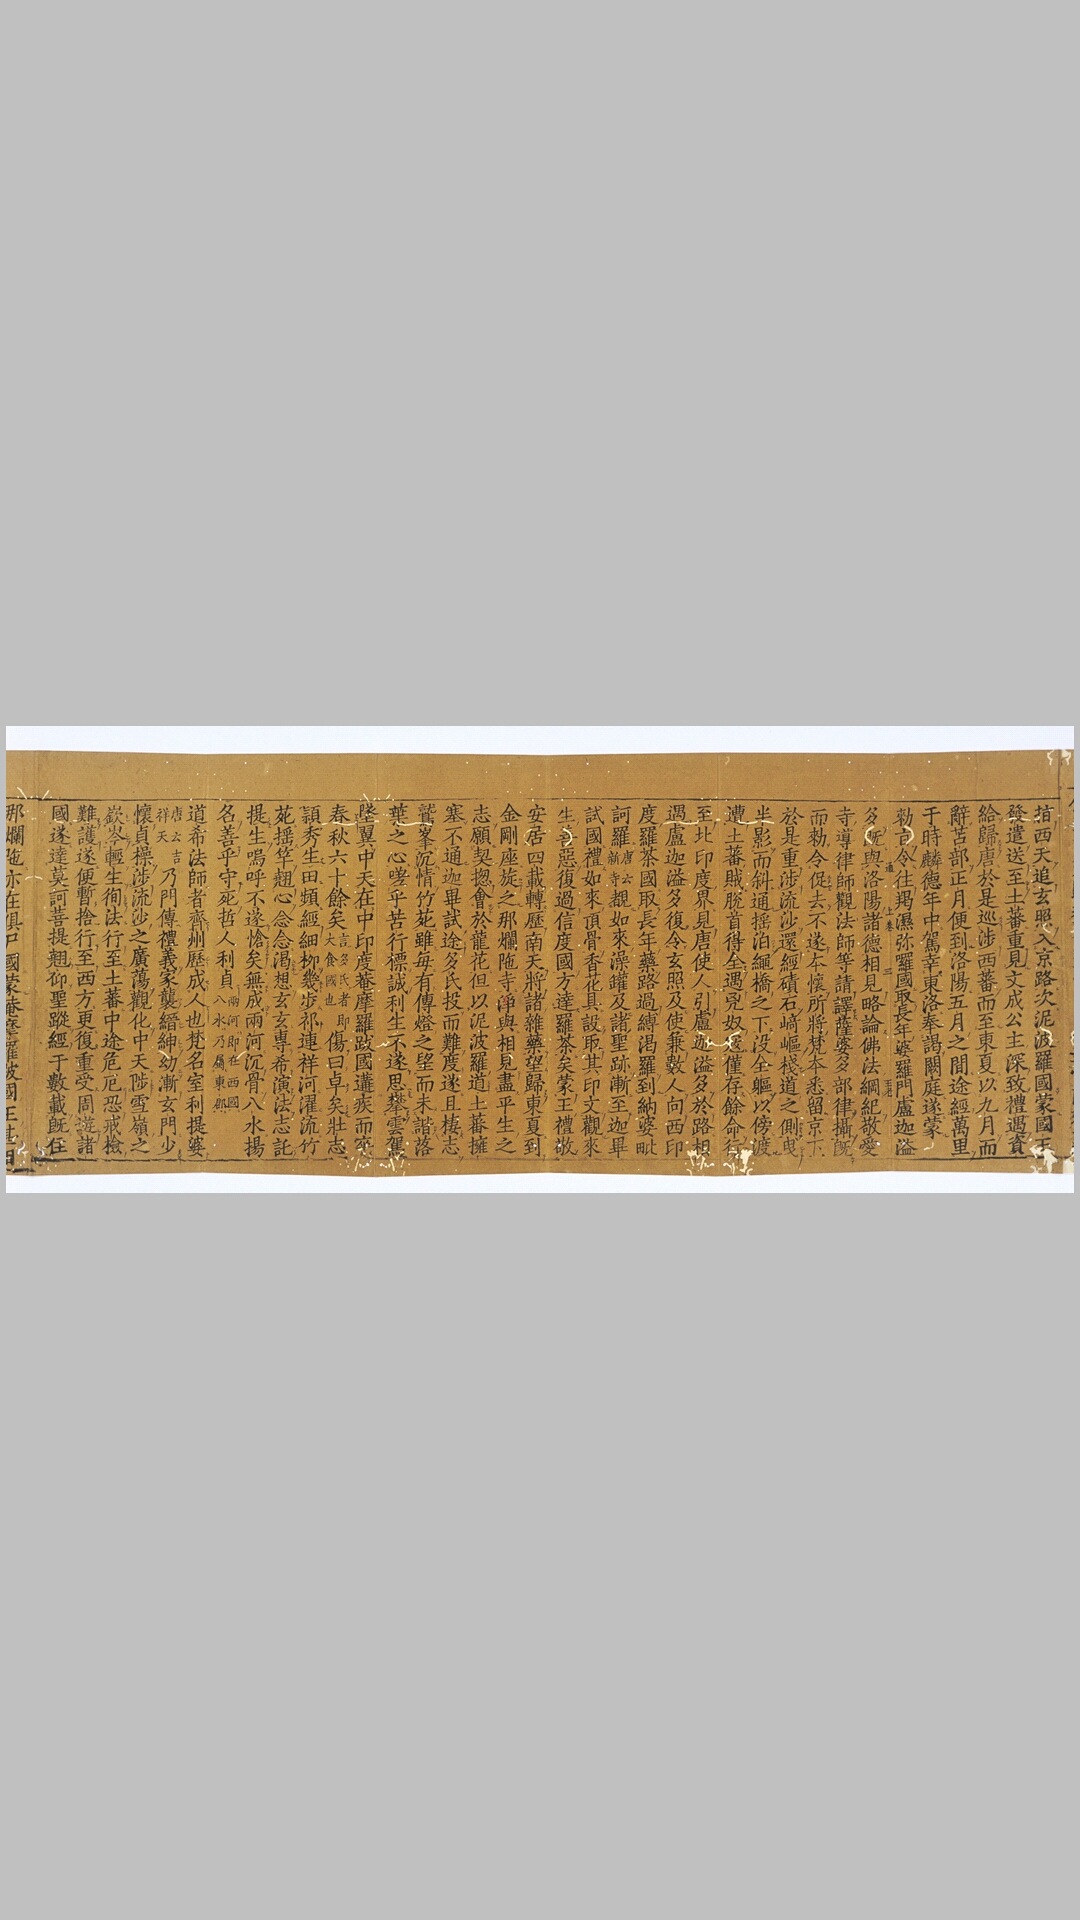 指西天追玄照入京路次泥波羅國蒙國王
發遣送至土蕃重見文成公主深致禮遇資
給歸唐於是巡涉西蕃而至東夏以九月而
辭苫部正月便到洛陽五月之間途經萬里
于時麟德年中駕幸東洛奉謁闕庭遂蒙
勑旨令往羯濕弥羅國取長年婆羅門盧迦溢
多既與洛陽諸德相見略論佛法綱紀敬愛
寺導律師觀法師等請譯薩婆多部律攝既
而勑令促去不遂本懷所將梵本悉留京下
於是重涉流沙還經磧石崎嶇棧道之側曳
半影而斜通摇泊繩橋之下没全軀以傍渡
遭土蕃賊脫首得全遇兇奴寇僅存餘命行
至北印度界見唐使人引盧迦溢多於路相
遇盧迦溢多復令玄照及使傔數人向西印
度羅荼國取長年藥路過縛渴羅到納婆毗
訶羅唐云新寺覩如來澡罐及諸聖跡漸至迦畢
試國禮如來頂骨香花具設取其印文觀來
生善惡復過信度國方達羅荼矣蒙王禮敬
安居四載轉歷南天將諸雜藥望歸東夏到
金剛座旋之那爛陁寺淨與相見盡平生之
志願契揔會於龍花但以泥波羅道土蕃擁
塞不通迦畢試途多氏投而難度遂且棲志
鷲峯沉情竹苑雖每有傳燈之望而未諧落
葉之心嗟乎苦行標誠利生不遂思攀雲駕
墜翼中天在中印度菴摩羅跛國遘疾而卒
春秋六十餘矣言多氏者即大食國也傷曰卓矣壯志
頴秀生田頻經細柳幾步祁連祥河濯流竹
苑摇芊翹心念念渇想玄玄專希演法志託
提生嗚呼不遂愴矣無成兩河沉骨八水揚
名善乎守死哲人利貞兩河即在西國八水乃屬東都
道希法師者齊州歷成人也梵名室利提婆
唐云吉祥天乃門傳禮義家襲縉紳幼漸玄門少
懷貞操涉流沙之廣蕩觀化中天陟雪嶺之
嶔岑輕生徇法行至土蕃中途危厄恐戒檢
難護遂便暫捨行至西方更復重受周遊諸
國遂達莫訶菩提翹仰聖蹤經于數載既住
那爛陁亦在俱尸國蒙菴摩羅跛國王甚相